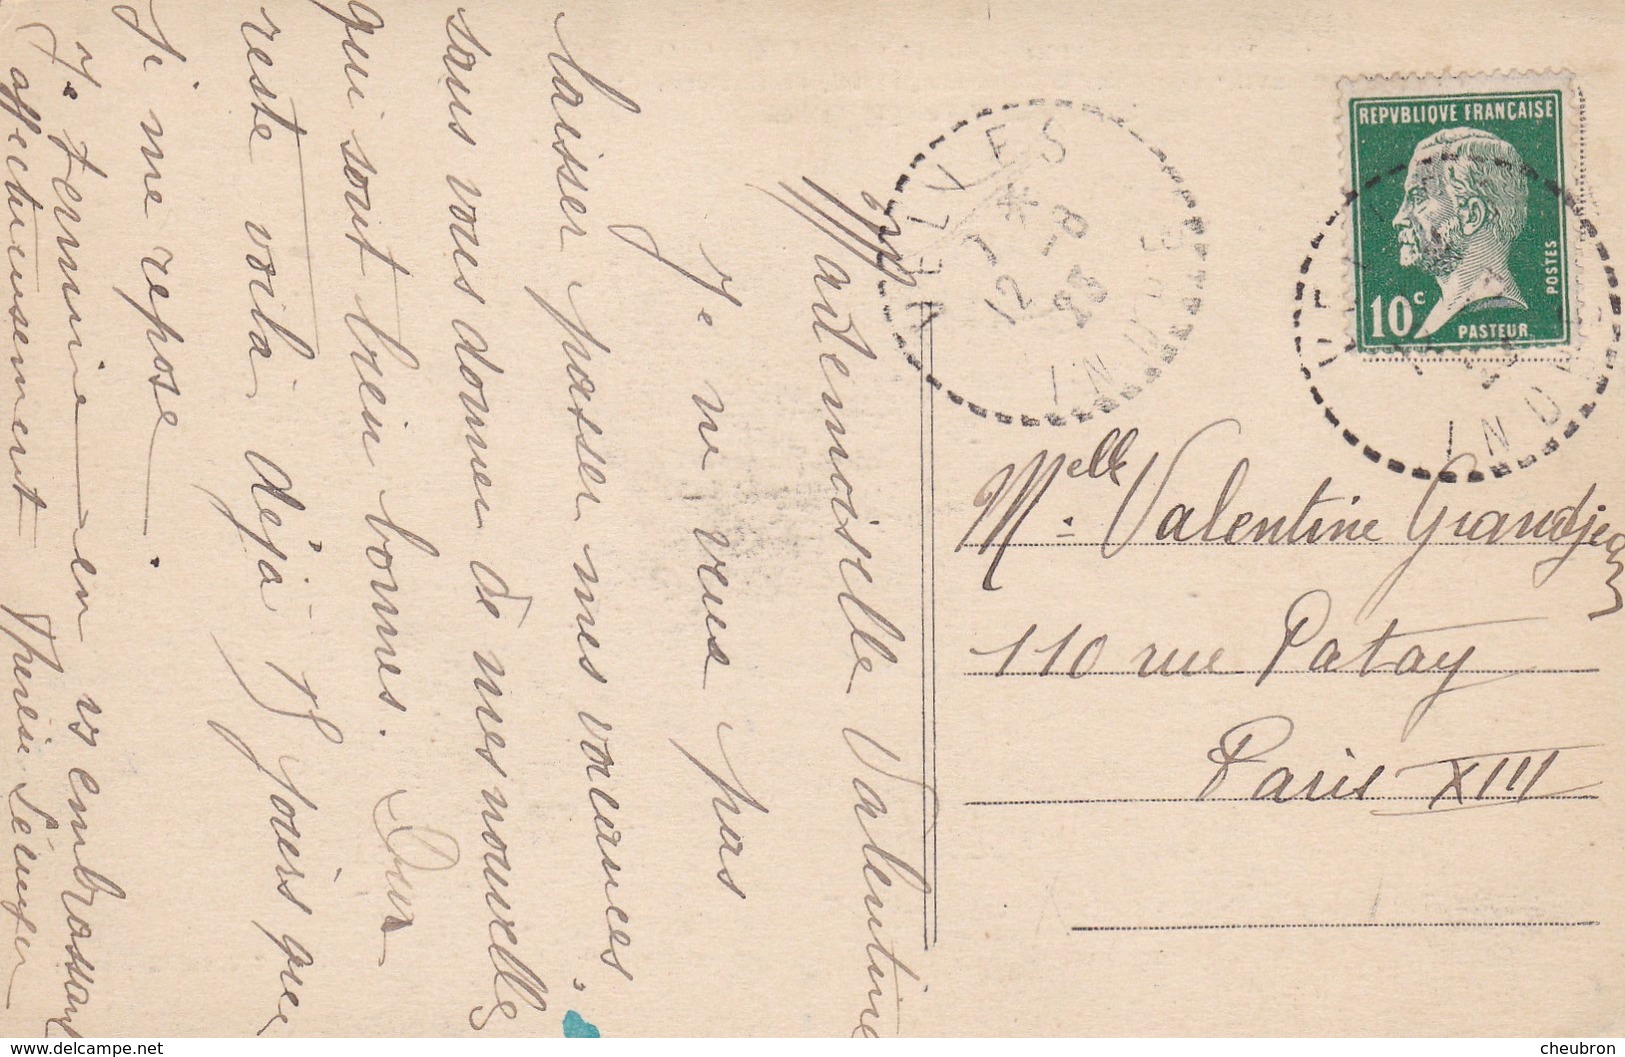 Mademoiselle Valentine
Je ne veux pas
laisser passer mes vacances
sans vous donner de mes nouvelles
qui sont bien bonnes.
reste voila déjà 15 jours que
je me repose.
Je termine en vs embrassant
affectueusement Therese
VELVES
12 * 1-8
23
INDRE
REPVBLIQVE FRANÇAISE
10c
POSTES
PASTEUR
INDRE
Melle Valentine Grandjean
110 rue Patay
Paris XIII
www.delcampe.net
cheubron